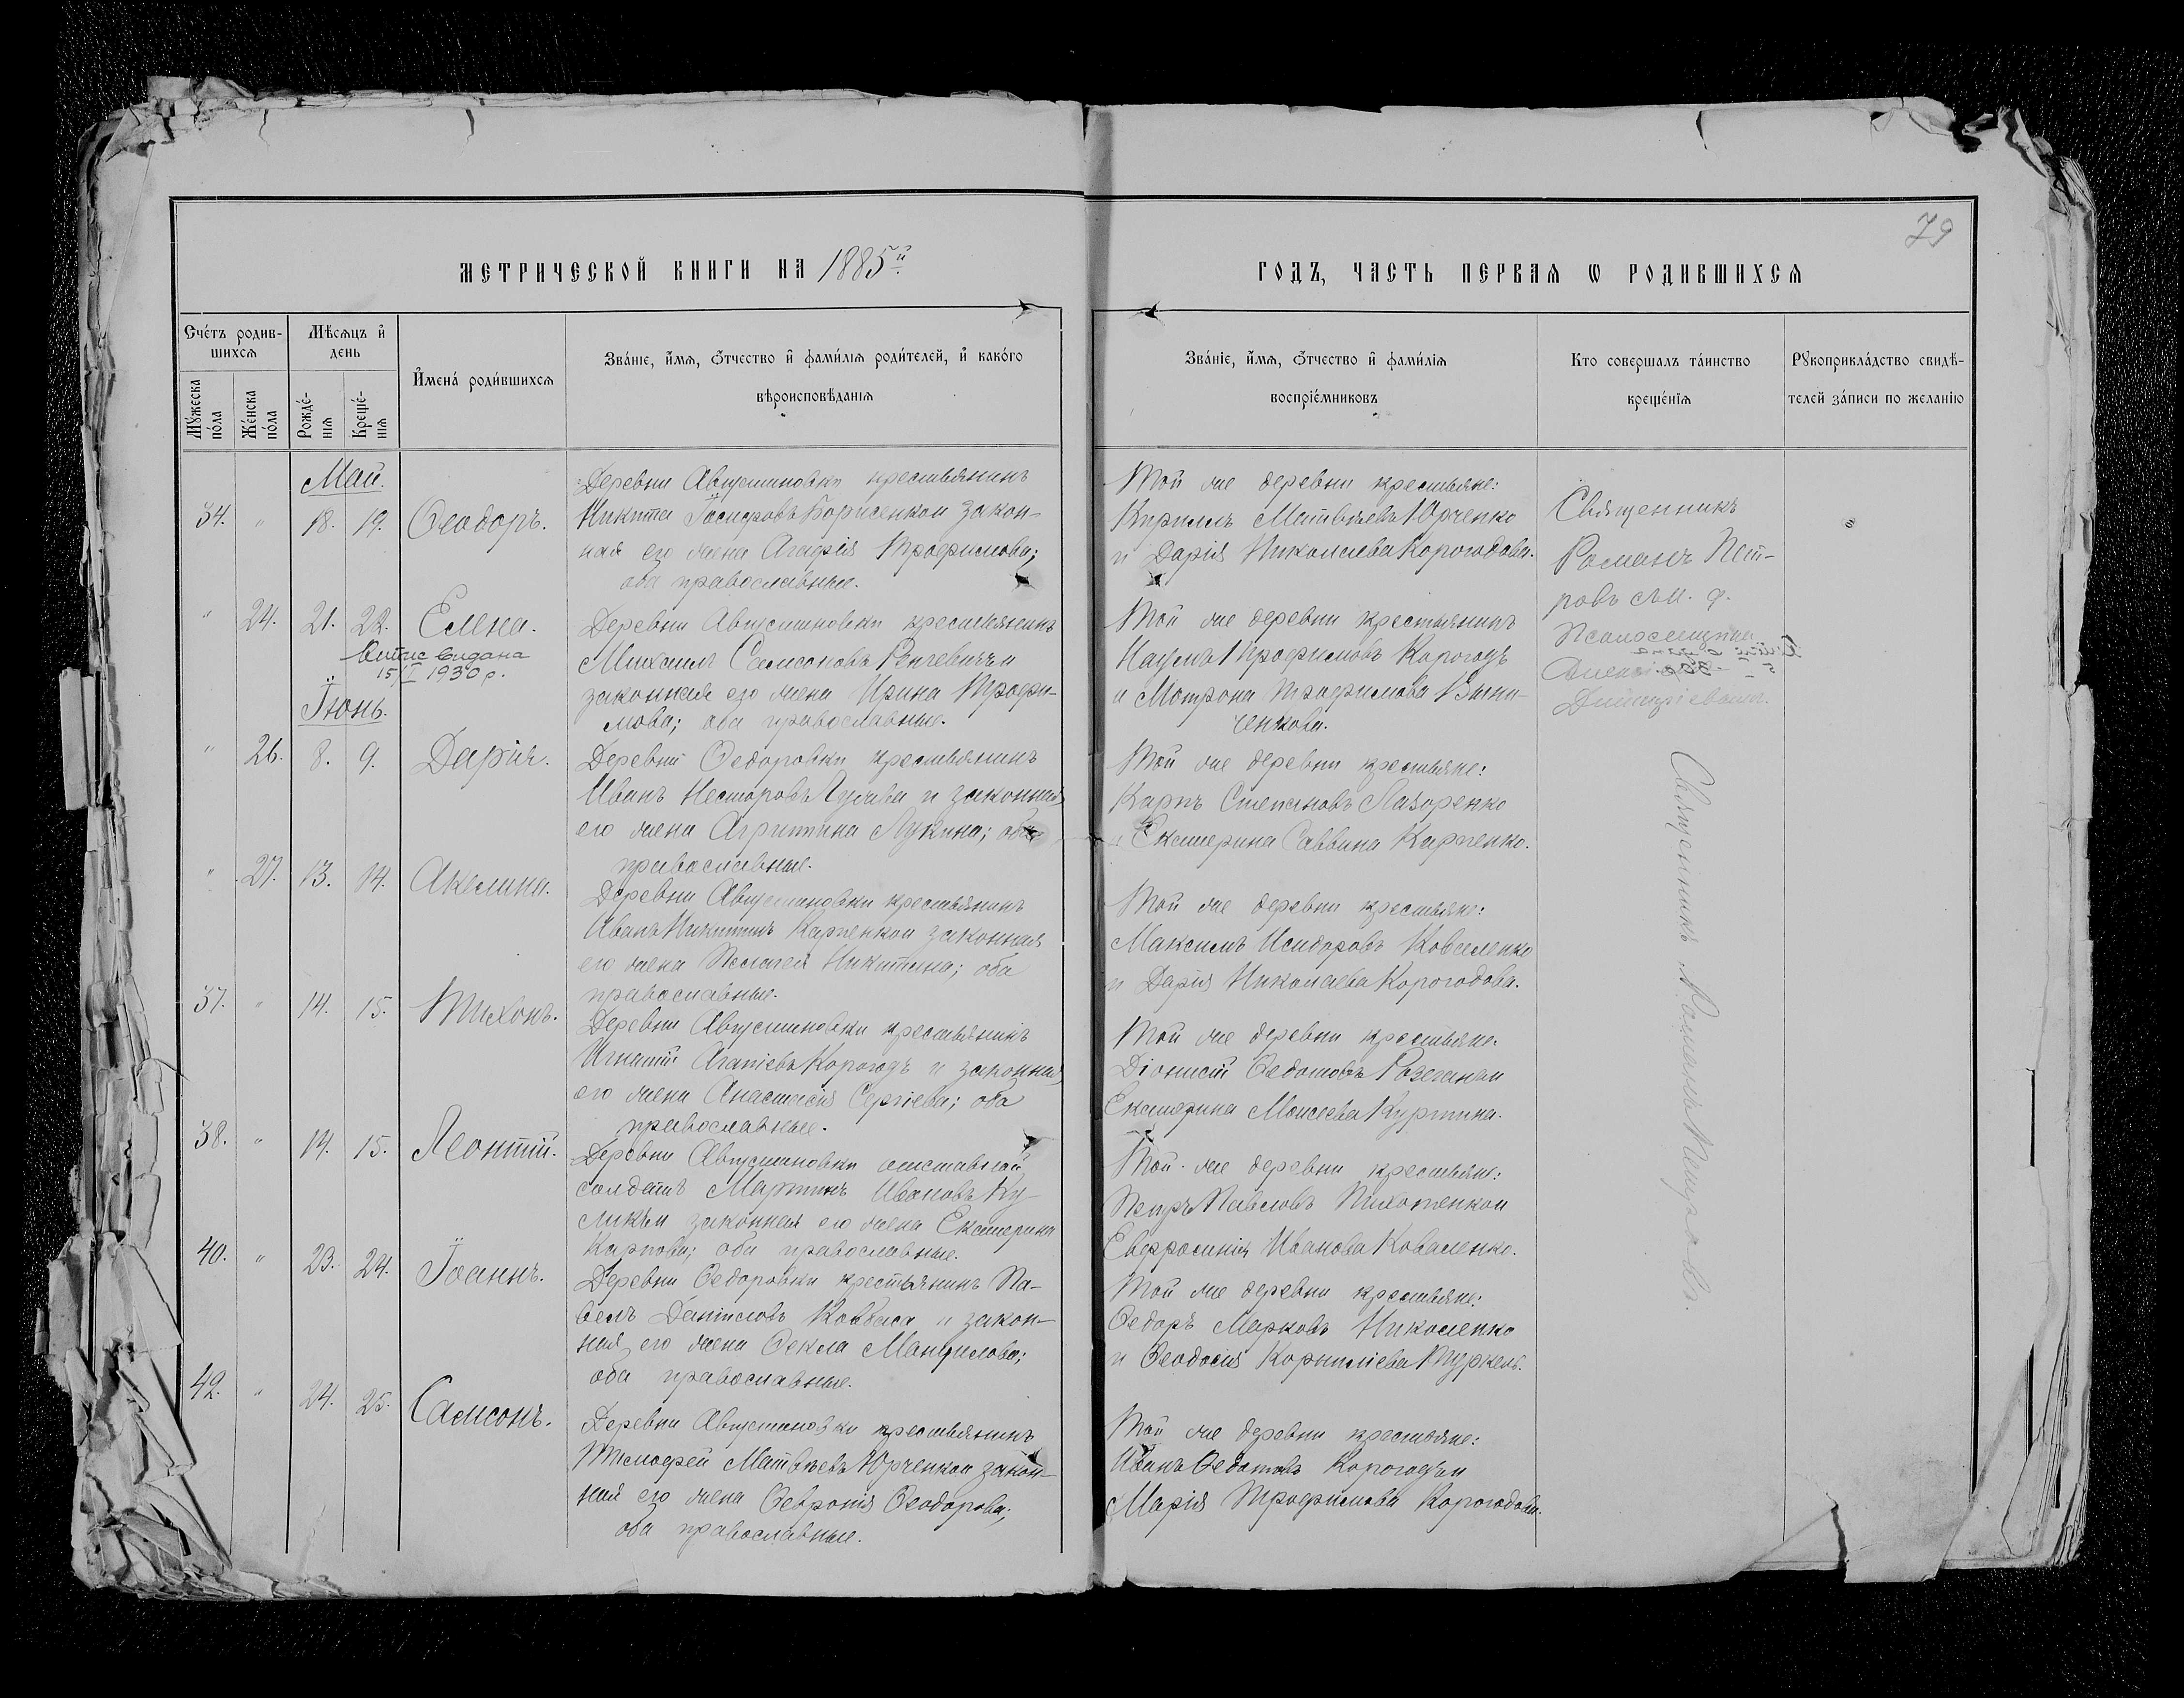 79
МЕТРИЧЕСКОЙ КНИГИ НА 1885й
ГОДЪ, ЧАСТЬ ПЕРВАЯ Ѡ РОДИВШИХСЯ
Сче́тъ родив-
шихся
Мꙋ́жеска по́ла
Же́нска по́ла
Мѣсяцъ и́ день
Рожде́-
нія
Креще́-
нія
И҆мена́ роди́вшихся
Зва́ніе, и҆́мя, ѻ҆́тчество и҆ фами́лія роди́телей, и҆ како́го
вѣроисповѣ́данія
Зва́ніе, и҆́мя, ѻ҆́тчество и҆ фами́лія
воспріе́мниковъ
Кто соверша́лъ та́инство
креще́нія
Рꙋкоприкла́дство свидѣ́-
телей за́писи по жела́нію
Май.
34. " 18. 19. Ѳеодоръ.
Деревни Августиновки крестьянинъ
Никита Іосифовъ Борисенко и закон-
ная его жена Агафія Трофимова;
оба православные.
Той же деревни крестьяне:
Кириллъ Матвѣевъ Юрченко
и Дарія Николаева Корогодова.
Священникъ
Романъ Пет-
ровъ съ и. д.
Псаломщика
Дмитріевымъ.
" 24. 21. 22. Елена.
Витяг видана
15/I 1930 р.
Деревни Августиновки крестьянинъ
Михаилъ Самсоновъ и
законная его жена Ирина Трофи-
мова; оба православные.
Той же деревни крестьянинъ
Наумъ Трофимовъ Корогодъ
и Мотрона Трофимова Вини-
ченкова.
Іюнь.
" 26. 8. 9. Дарія.
Деревни Ѳедоровки крестьянинъ
Иванъ Несторовъ и законная
его жена Агрипина Лукина; оба
православные.
Той же деревни крестьяне:
Карпъ Степановъ Лазоренко
и Екатерина Саввина Карпенко.
" 27. 13. 14. Акелина.
Деревни Августиновки крестьянинъ
Иванъ Никитинъ Карпенко и законная
его жена Пелагея Никитина; оба
православные.
Той же деревни крестьяне:
Максимъ Исидоровъ Коваленко
и Дарія Николаева Корогодова.
37. " 14. 15. Тихонъ.
Деревни Августиновки крестьянинъ
Игнатій Агапіевъ Корогодъ и законная
его жена Анастасія Сергіева; оба
православные.
Той же деревни крестьяне:
Діонисій Ѳедотовъ и
Екатерина Моисеева
38. " 14. 15. Леонтій.
Деревни Августиновки отставной
солдатъ Мартинъ Ивановъ Ку-
ликъ и законная его жена Екатерина
Карпова; оба православные.
Той же деревни крестьяне:
Петръ Павловъ Пихотенко и
Евфросинія Иванова Коваленко.
40. " 23. 24. Іоаннъ.
Деревни Ѳедоровки крестьянинъ Па-
велъ Даниловъ Ковбаса и закон-
ная его жена Ѳекла Мануилова;
оба православные.
Той же деревни крестьяне:
Ѳедоръ Марковъ Николенко
и Ѳеодосія Корниліева
42. " 24. 25. Самсонъ.
Деревни Августиновки крестьянинъ
Тимофей Матвѣевъ Юрченко и закон-
ная его жена Ѳевронія Ѳеодорова;
оба православные.
Той же деревни крестьяне:
Иванъ Ѳедотовъ Корогодъ и
Марія Трофимова Корогодова.
Священникъ Романъ Петровъ.